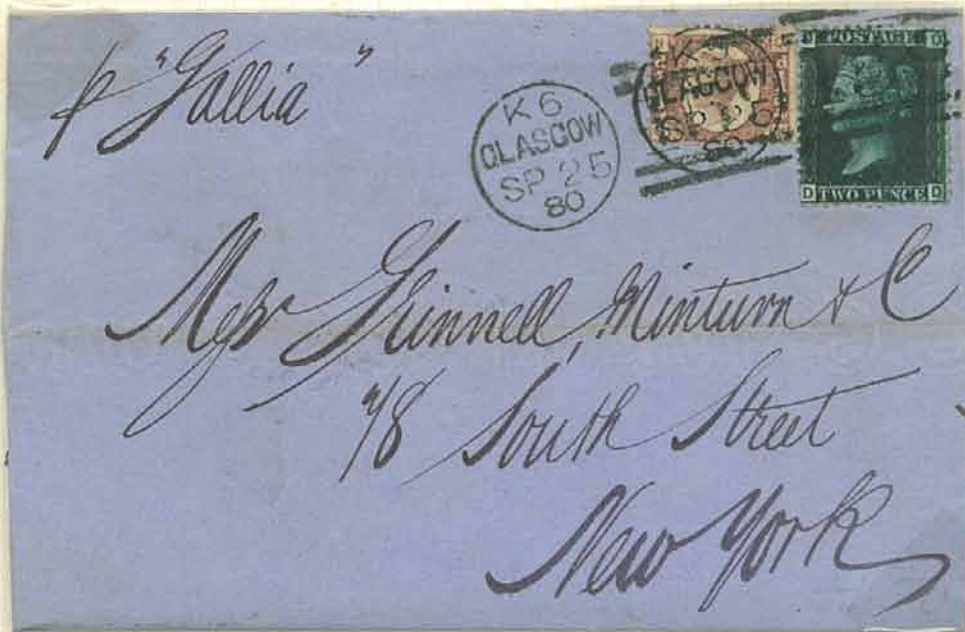 p "Gallia"
K 6
GLASGOW
SP 25
80
GLASGOW
SP 25
80
POSTAGE
TWO PENCE
D D
Messr Grinnell, Minturn & C
78 South Street
New York